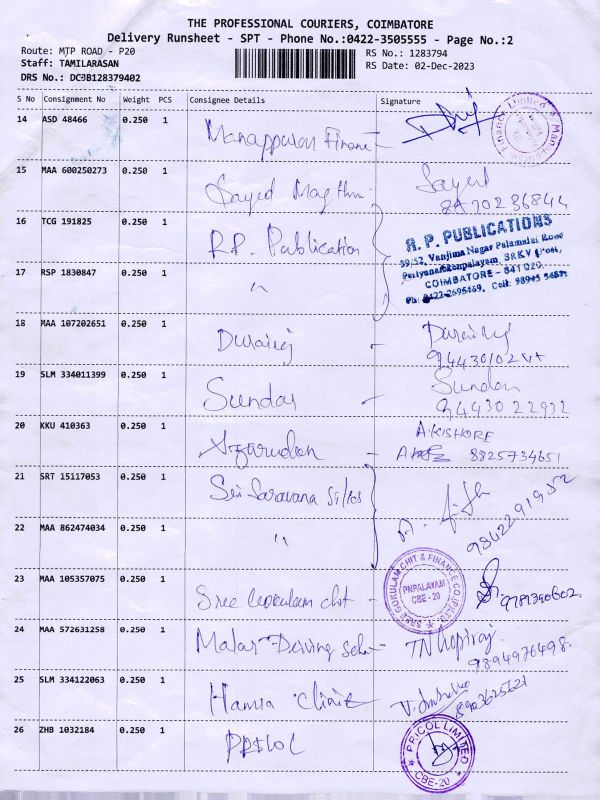 THE PROFESSIONAL COURIERS, COIMBATORE
Delivery Runsheet - SPT - Phone No.:0422-3505555 - Page No.:2
Route: MTP ROAD - P20
RS No.: 1283794
Staff: TAMILARASAN
RS Date: 02-Dec-2023
DRS No.: DCBB128379402
S No Consignment No Weight PCS Consignee Details Signature
14 ASD 48466 0.250 1 Manappuram Finance
15 MAA 600250273 0.250 1 Sayed
Sayed
16 TCG 191825 0.250 1 R.P. Publication
R. P. PUBLICATIONS
39/52, Vanjima Nagar
COIMBATORE - 641 020.
17 RSP 1830847 0.250 1 "
18 MAA 107202651 0.250 1 Durairaj - Durairaj
19 SLM 334011399 0.250 1 Sundar - Sundar
94430 22932
20 KKU 410363 0.250 1 - A.KISHORE
8825734651
21 SRT 15117053 0.250 1 Sri Saravana Silks
9842291952
22 MAA 862474034 0.250 1 "
23 MAA 105357075 0.250 1 Sree Gokulam chit -
SREE GOKULAM CHIT & FINANCE CO.(P) LTD.
PNPALAYAM
CBE - 20
24 MAA 572631258 0.250 1 Malar Driving - TN
9894976498.
25 SLM 334122063 0.250 1 Hamsa Clinic
26 ZHB 1032184 0.250 1 PRICOL
PRICOL LIMITED
CBE-20